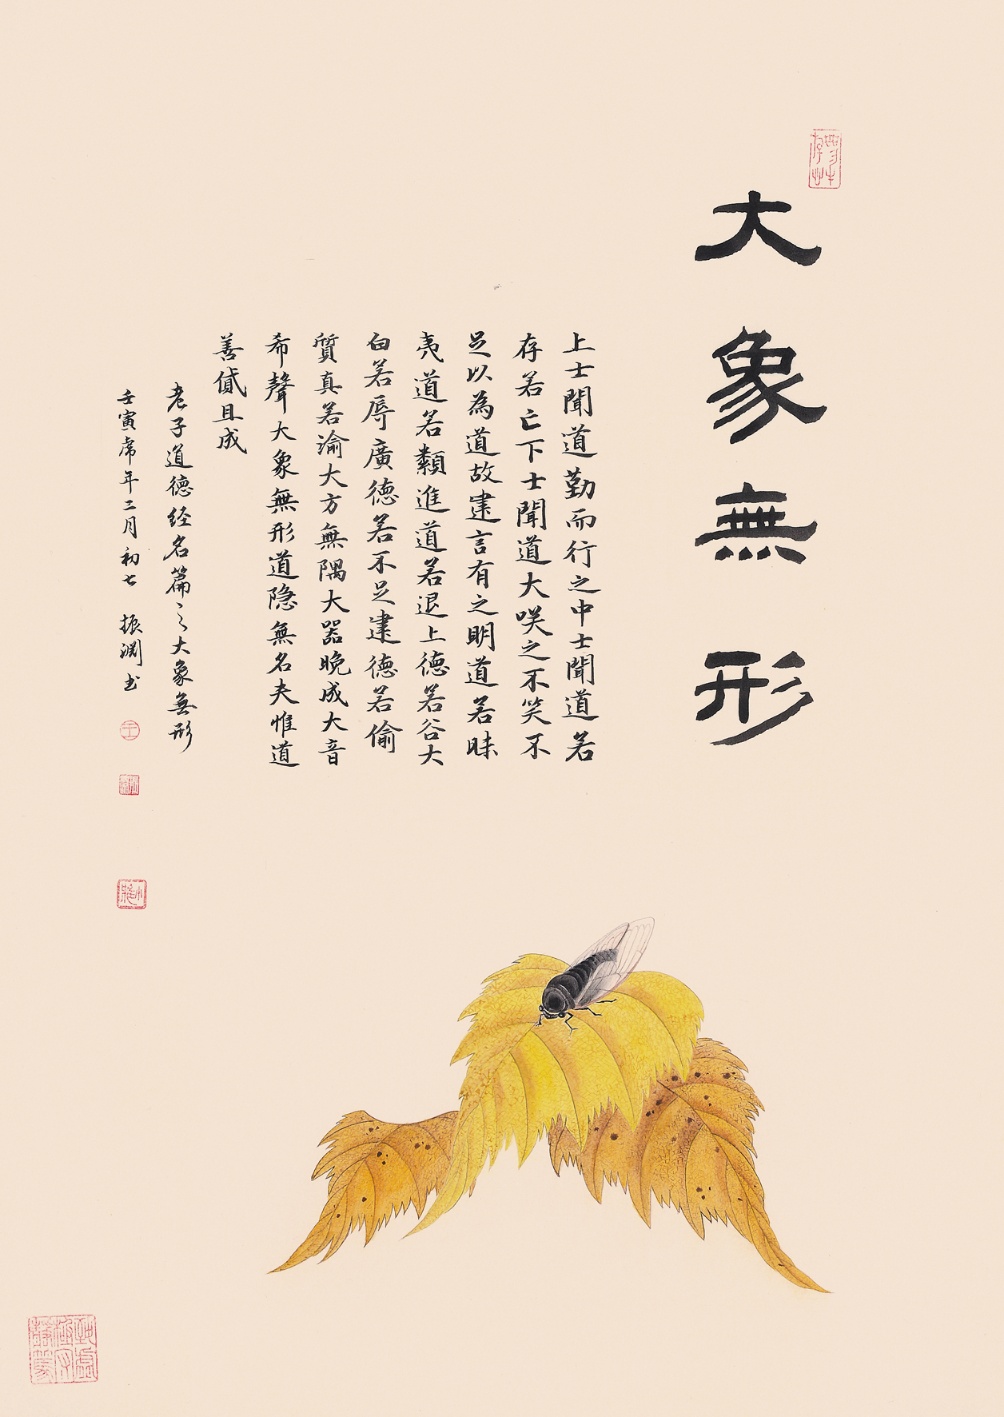 大象無形
上士聞道勤而行之中士聞道若
存若亡下士聞道大咲之不笑不
足以為道故建言有之明道若昧
夷道若纇進道若退上德若谷大
白若辱廣德若不足建德若偷
質真若渝大方無隅大器晚成大音
希聲大象無形道隐無名夫惟道
善貸且成
老子道德经名篇之大象無形
壬寅席年二月初七 振淵书